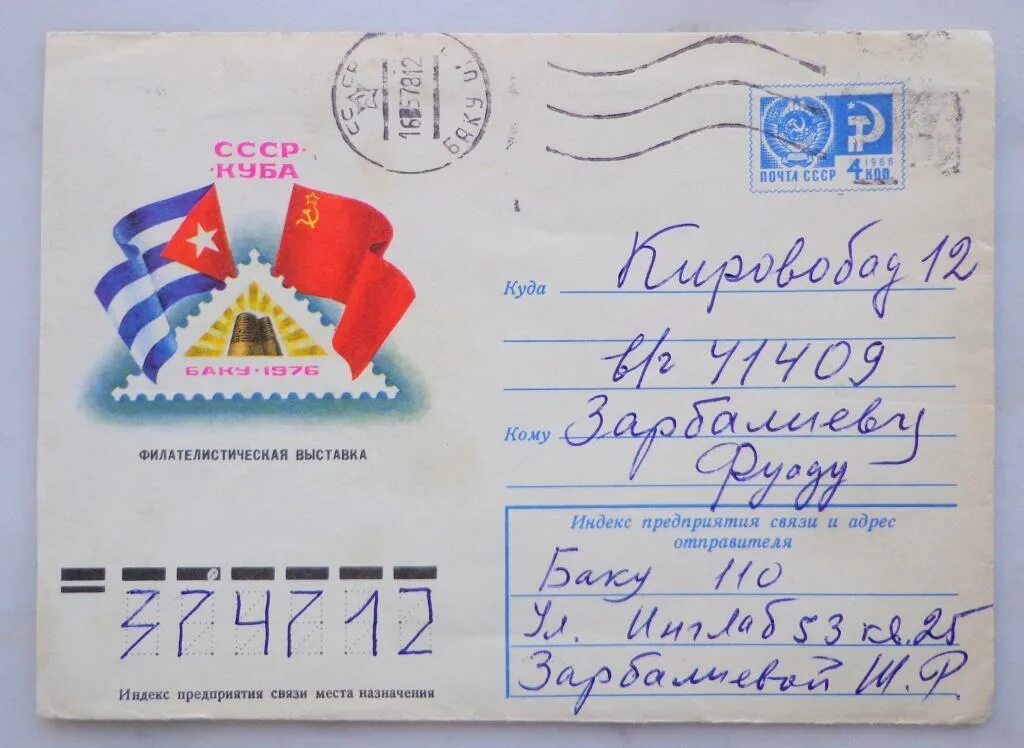 СССР·
·КУБА
БАКУ·1976
ФИЛАТЕЛИСТИЧЕСКАЯ ВЫСТАВКА
СССР
БАКУ
ПОЧТА СССР
1966
4 коп.
Куда Кировобад 12
в/г 41409
Кому Зарбалиеву
Фуаду
Индекс предприятия связи и адрес
отправителя
Баку 110
Ул. Инглаб 53 кв. 25
Зарбалиевой Ш. Р.
374712
Индекс предприятия связи места назначения